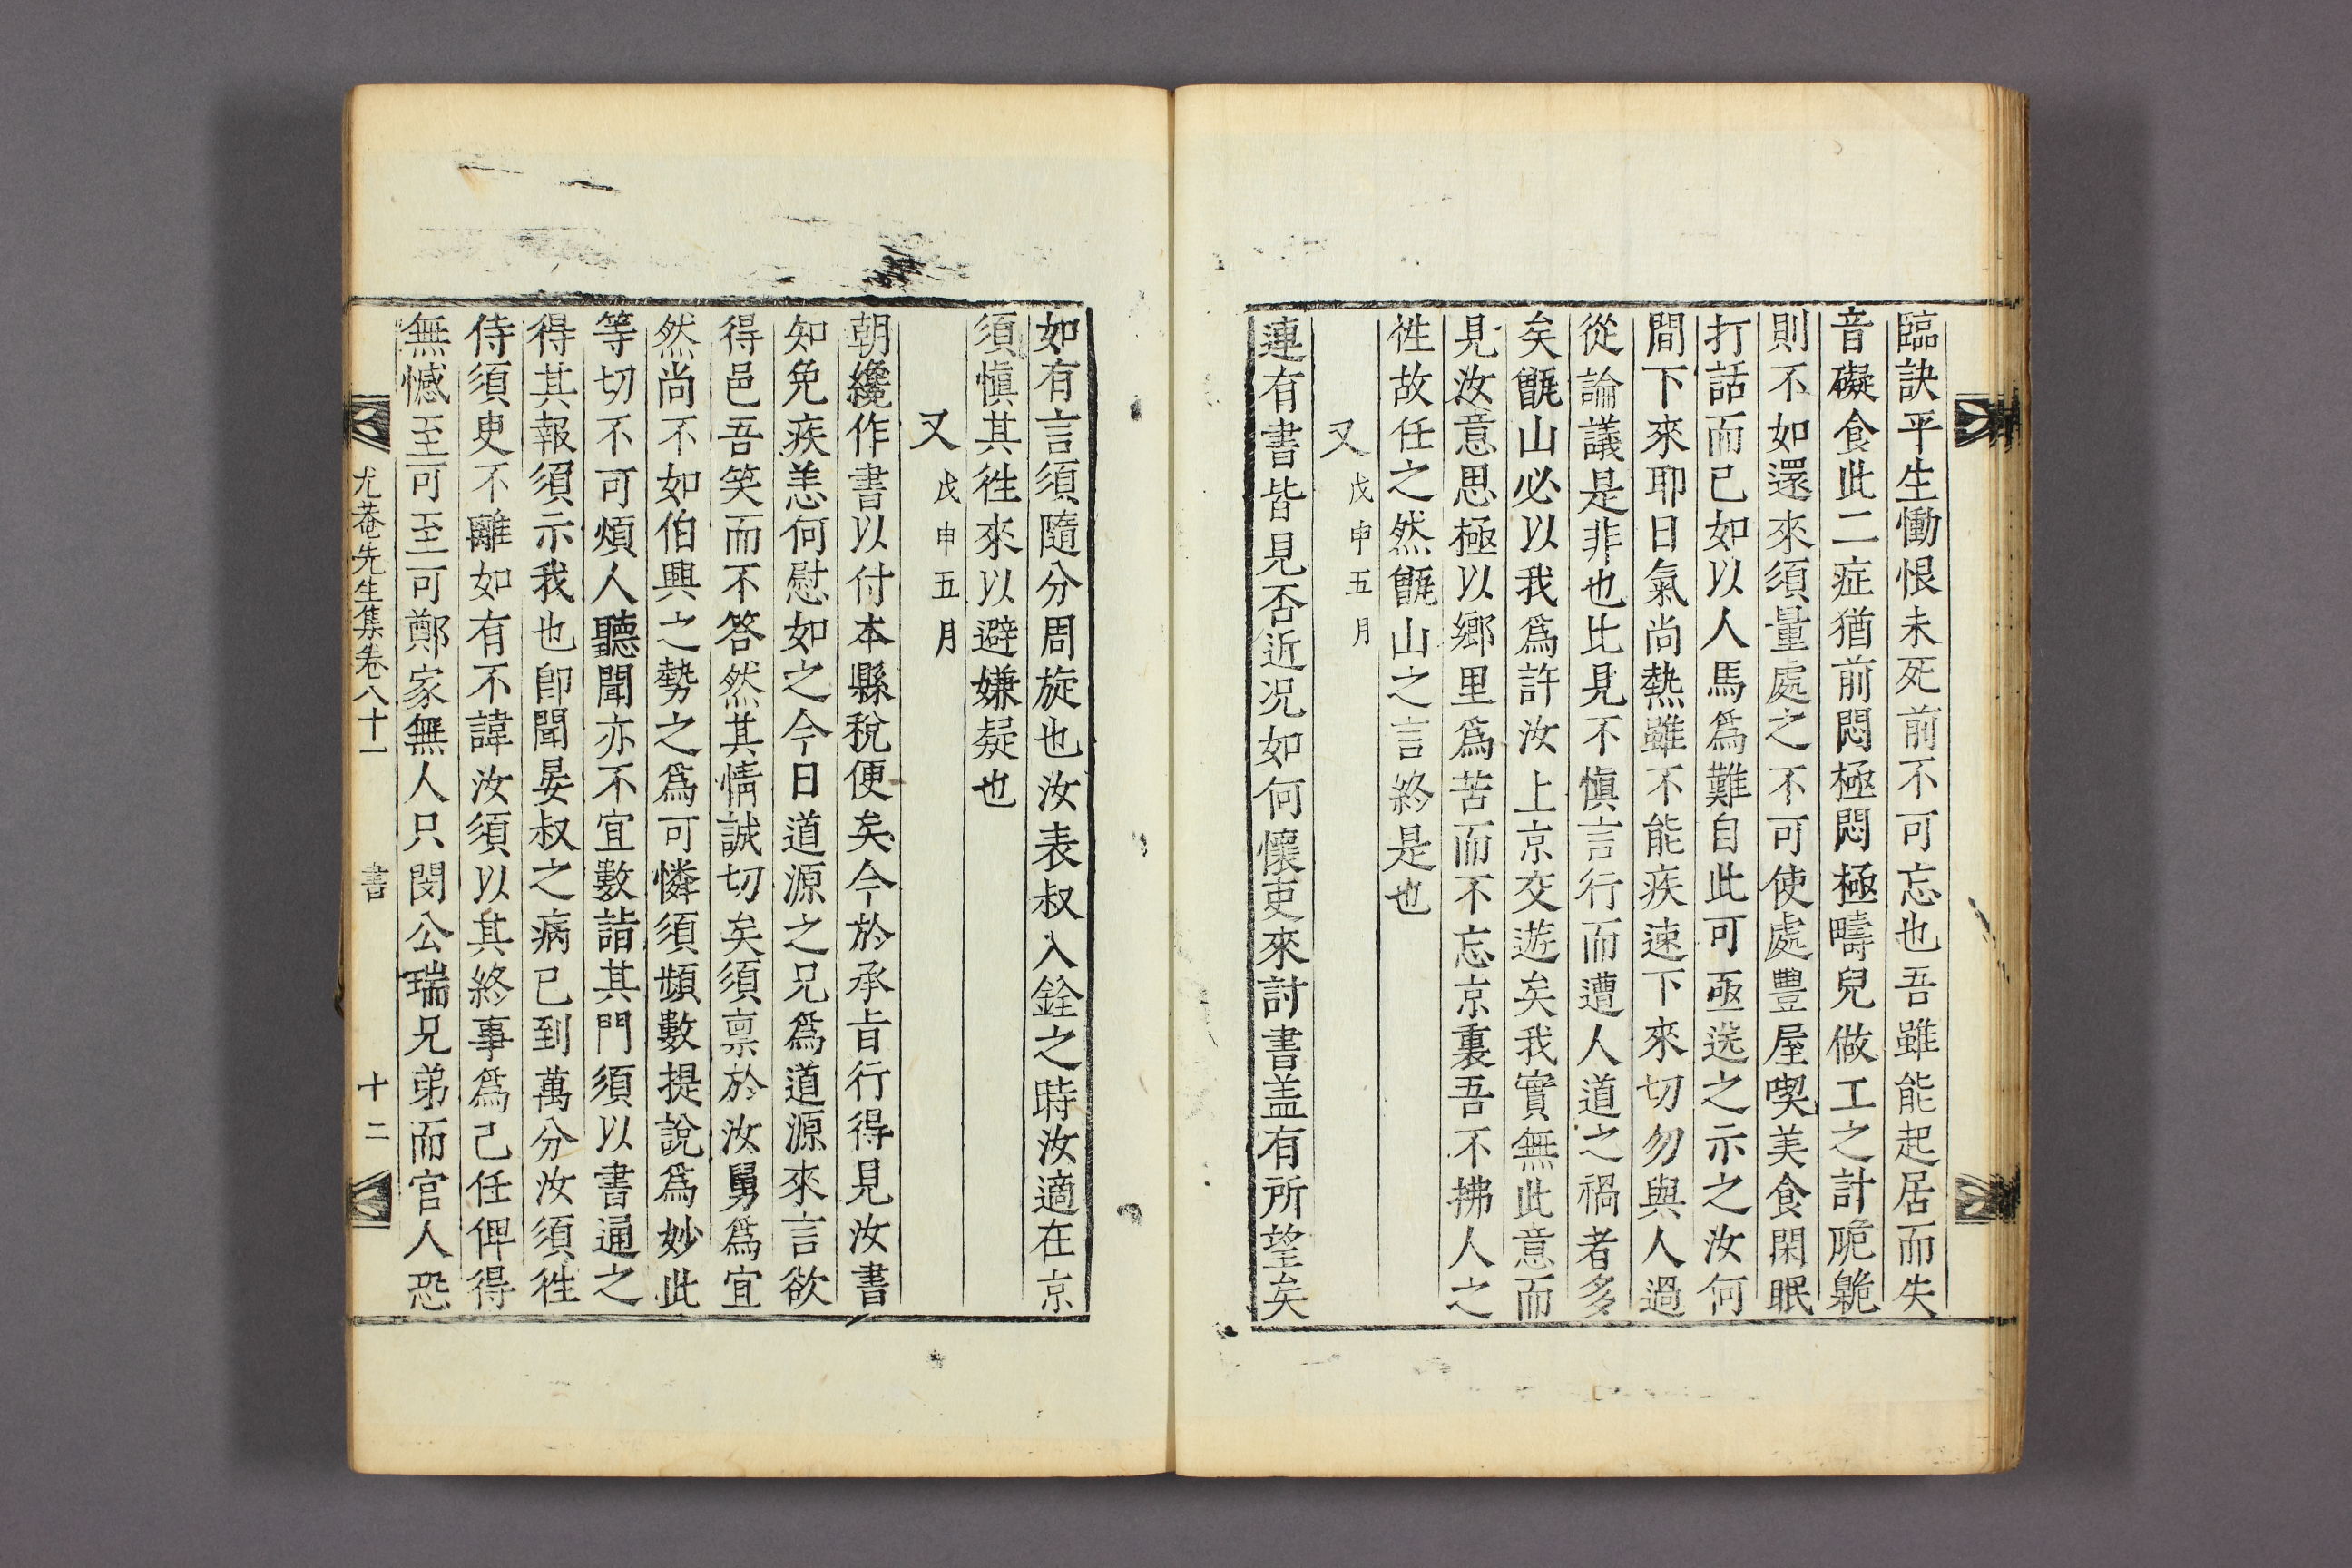 臨訣平生慟恨未死前不可忘也吾雖能起居而失
音礙食此二症猶前悶極悶極疇兒做工之計脆臲
則不如還來須量處之不可使處豐屋喫美食閑眠
打話而已如以人馬爲難自此可亟送之示之汝何
間下來耶日氣尙熱雖不能疾速下來切勿與人過
從論議是非也比見不愼言行而遭人道之禍者多
矣甑山必以我爲許汝上京交遊矣我實無此意而
見汝意思極以鄕里爲苦而不忘京裏吾不拂人之
性故任之然甑山之言終是也
又戊申五月
連有書皆見否近況如何懷吏來討書盖有所望矣
如有言須隨分周旋也汝表叔入銓之時汝適在京
須愼其往來以避嫌疑也
又戊申五月
朝纔作書以付本縣稅便矣今於承旨行得見汝書
知免疾恙何慰如之今日道源之兄爲道源來言欲
得邑吾笑而不答然其情誠切矣須禀於汝舅爲宜
然尙不如伯興之勢之爲可憐須頻數提說爲妙此
等切不可煩人聽聞亦不宜數詣其門須以書通之
得其報須示我也卽聞晏叔之病已到萬分汝須往
侍須臾不離如有不諱汝須以其終事爲己任俾得
無憾至可至可鄭家無人只閔公瑞兄弟而官人恐
尤菴先生集卷八十一 書 十二